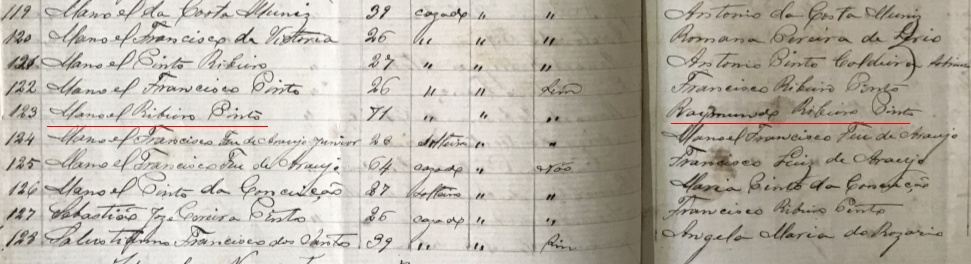 119 Manoel da Costa Muniz 39 cazado " " Antonio da Costa Muniz
120 Manoel Francisco da Victoria 26 " " " Romana Pereira de Lirio
121 Manoel Pinto Ribeiro 27 " " " Antonio Pinto Caldeira
122 Manoel Francisco Pinto 26 " " Sim Francisco Ribeiro Pinto
123 Manoel Ribeiro Pinto 71 " " " Raymundo Ribeiro Pinto
124 Manoel Francisco de Araujo Junior 28 solteiro " " Manoel Francisco de Araujo
125 Manoel Francisco de Araujo 64 cazado " Não Francisco Luiz de Araujo
126 Manoel Pinto da Conceição 87 solteiro " " Maria Pinto da Conceição
127 Sebastião Joze Pinto 26 cazado " " Francisco Ribeiro Pinto
128 Salustiano Francisco dos Santos 39 " " Sim Angela Maria do Rozario